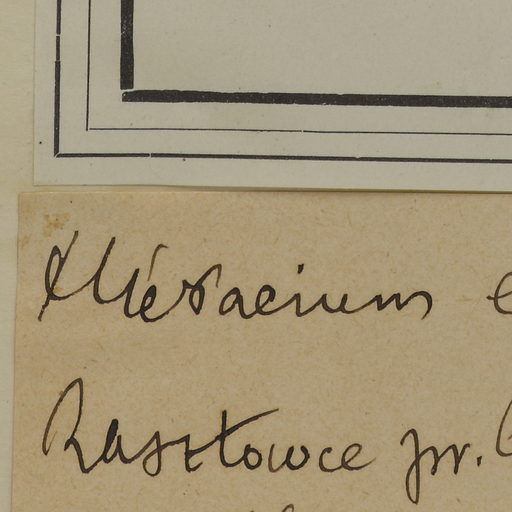 Hieracium
Rasztowce pr.